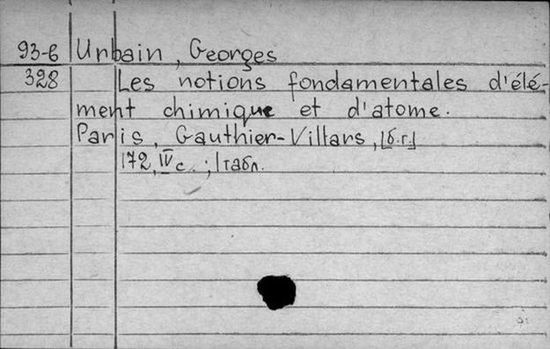 93-6 Urbain, Georges
328 Les notions fondamentales d'élé-
ment chimique et d'atome.
Paris, Gauthier-Villars, [б.г.]
172, IV с.; 1 табл.